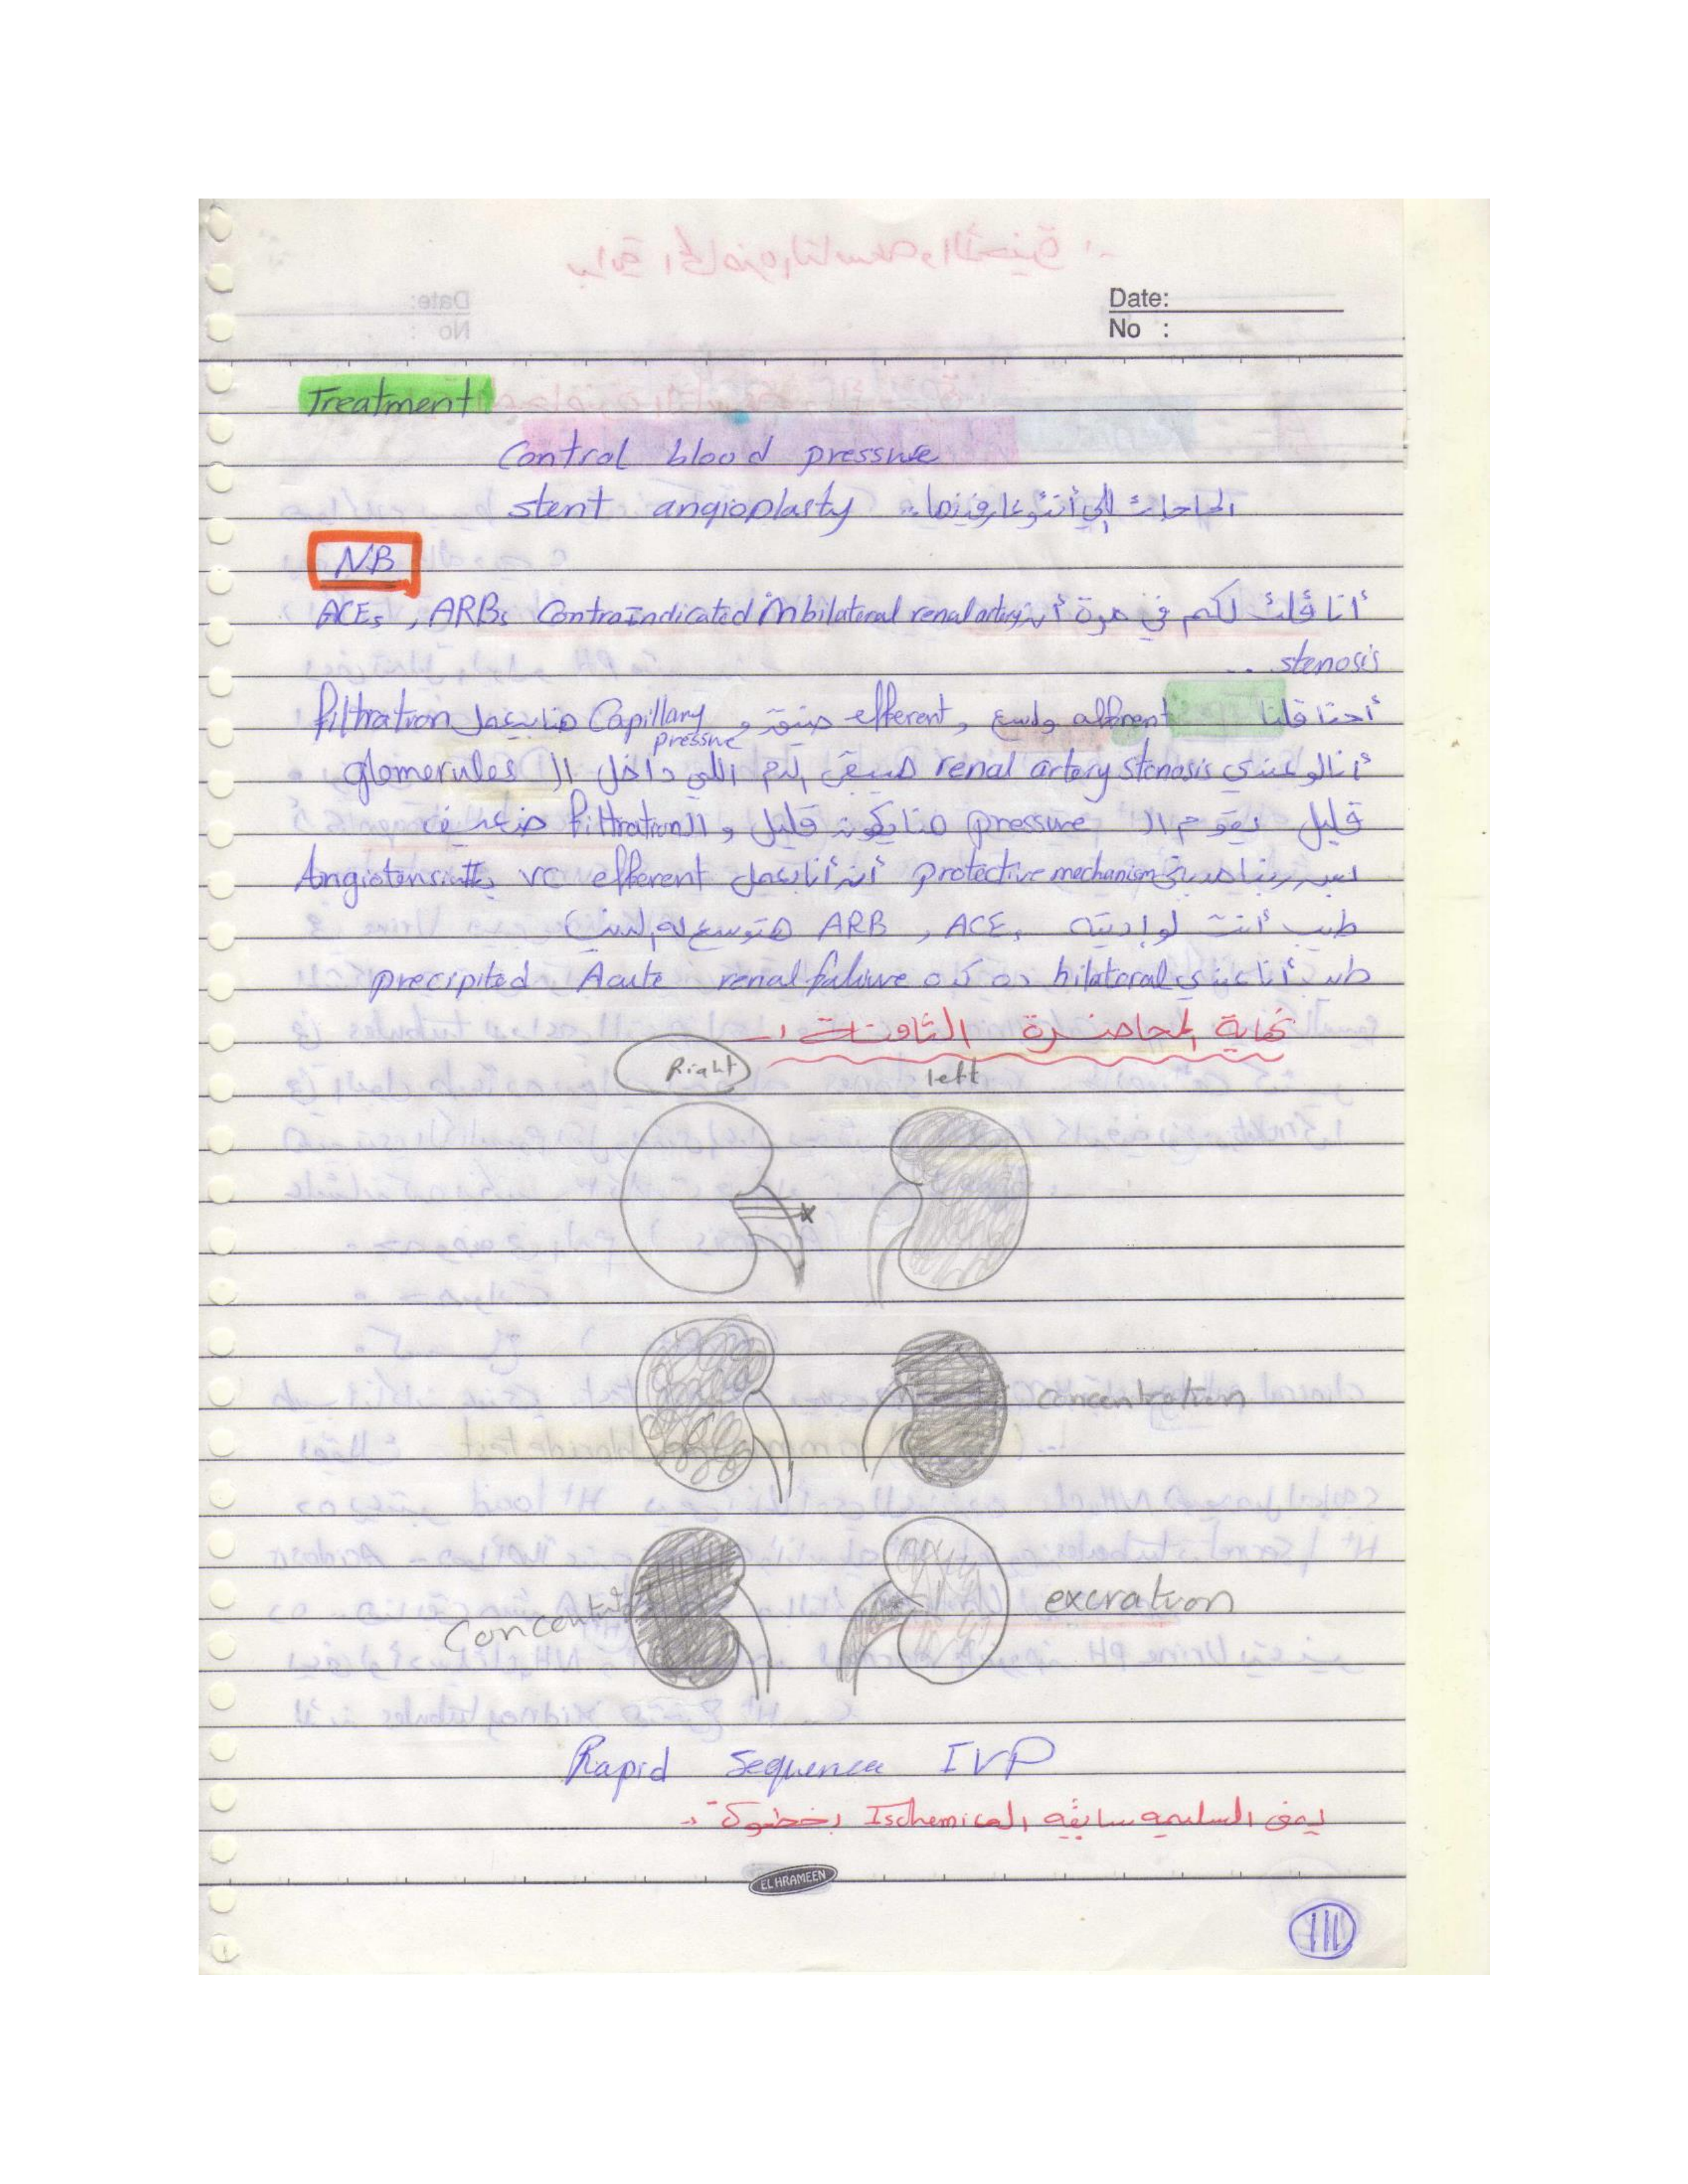 Date:
No :
Treatment
Control blood pressure
stent angioplasty الحاجات إلي أنتو عارفينها
NB
أنا قلت لكم في مرة أن ACEs , ARBs ContraIndicated in bilateral renal artery
stenosis ...
أحنا قلنا afferent واسع , efferent ضيق و Capillary pressure هنا بيعمل filtration
أنا لو عندي renal artery stenosis هيبقى الدم اللي داخل ال glomerules
قليل يقوم ال pressure هنا يكون قليل و ال filtration ضعيف
بس ربنا protective mechanism أن أنا بعمل efferent VC ب Angiotensin II
طيب أنت لو إديته ACE , ARB هتوسع
طب أنا عندي bilateral ده كده precipited Acute renal failure
نهاية المحاضرة الثامنة
Right
left
concentration
Concent
excration
Rapid Sequence IVP
يعنى السليمه سابقه ال Ischemic بخطوة
EL HRAMEEN
111